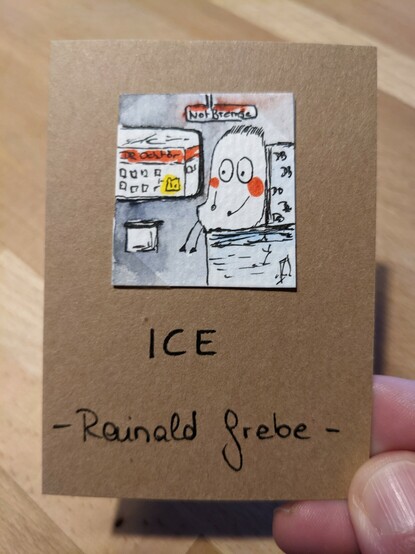 NotBremse
DB
DB
DB
DB
ICE
- Rainald Grebe -